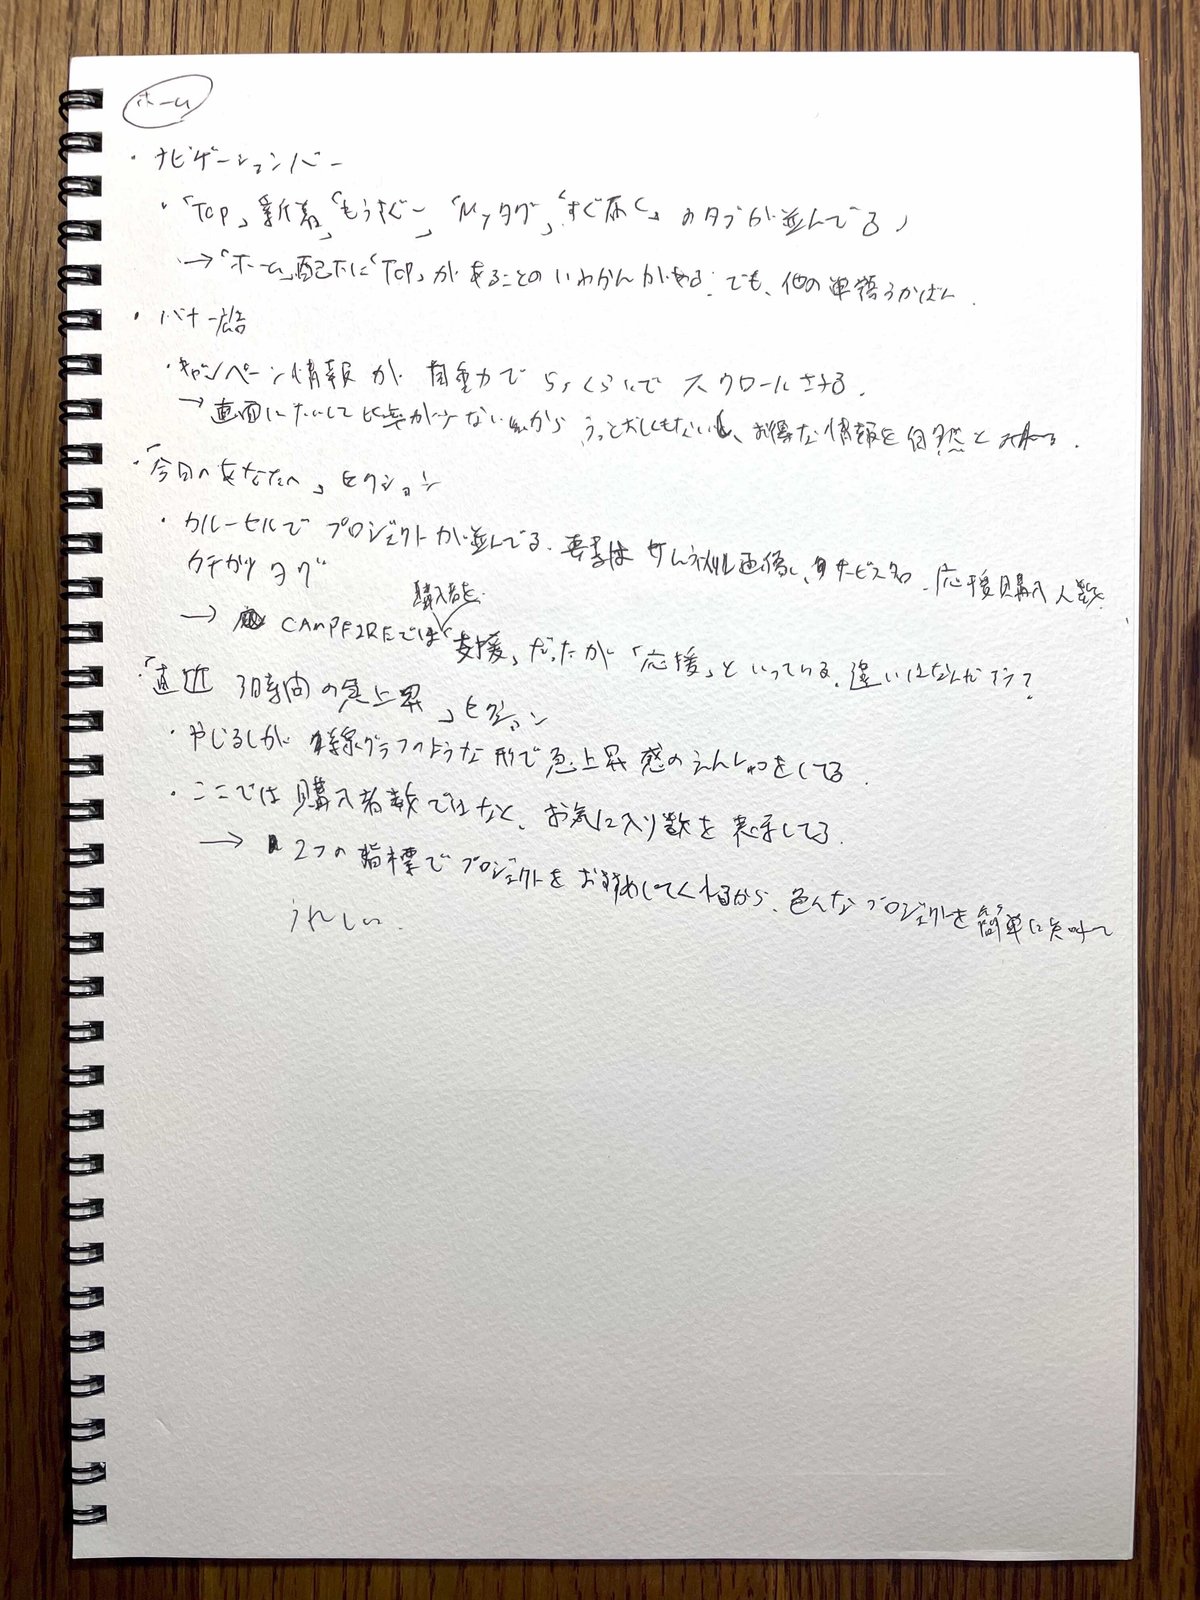 ホーム
・ナビゲーションバー
・「TOP」新着「もうすぐ」「Myタグ」「すぐ届く」のタブが並んでる
→「ホーム」配下に「TOP」があることのいわかんがある。でも、他の単語うかばん。
・バナー広告
・キャンペーン情報が自動で5、くらいでスクロールされる。
→画面にたいして比率が少ないからうっとおしくもないし、お得な情報を自然と
・「今日のあなたへ」セクション
・カルーセルでプロジェクトが並んでる。要素はサムネイル画像、サービス名、応援購入人数
クチガリタグ
購入者を
→CAMPFIREでは「支援」だったが「応援」といっている。違いはなんだろう?
・「直近3時間の急上昇」セクション
・やじるしが線グラフのような形で急上昇感のえんしゅつをしてる。
・ここでは購入者数ではなく、お気に入り数を表示してる。
→2つの指標でプロジェクトをお勧めしてくれるから、色んなプロジェクトを簡単に知れて
うれしい。